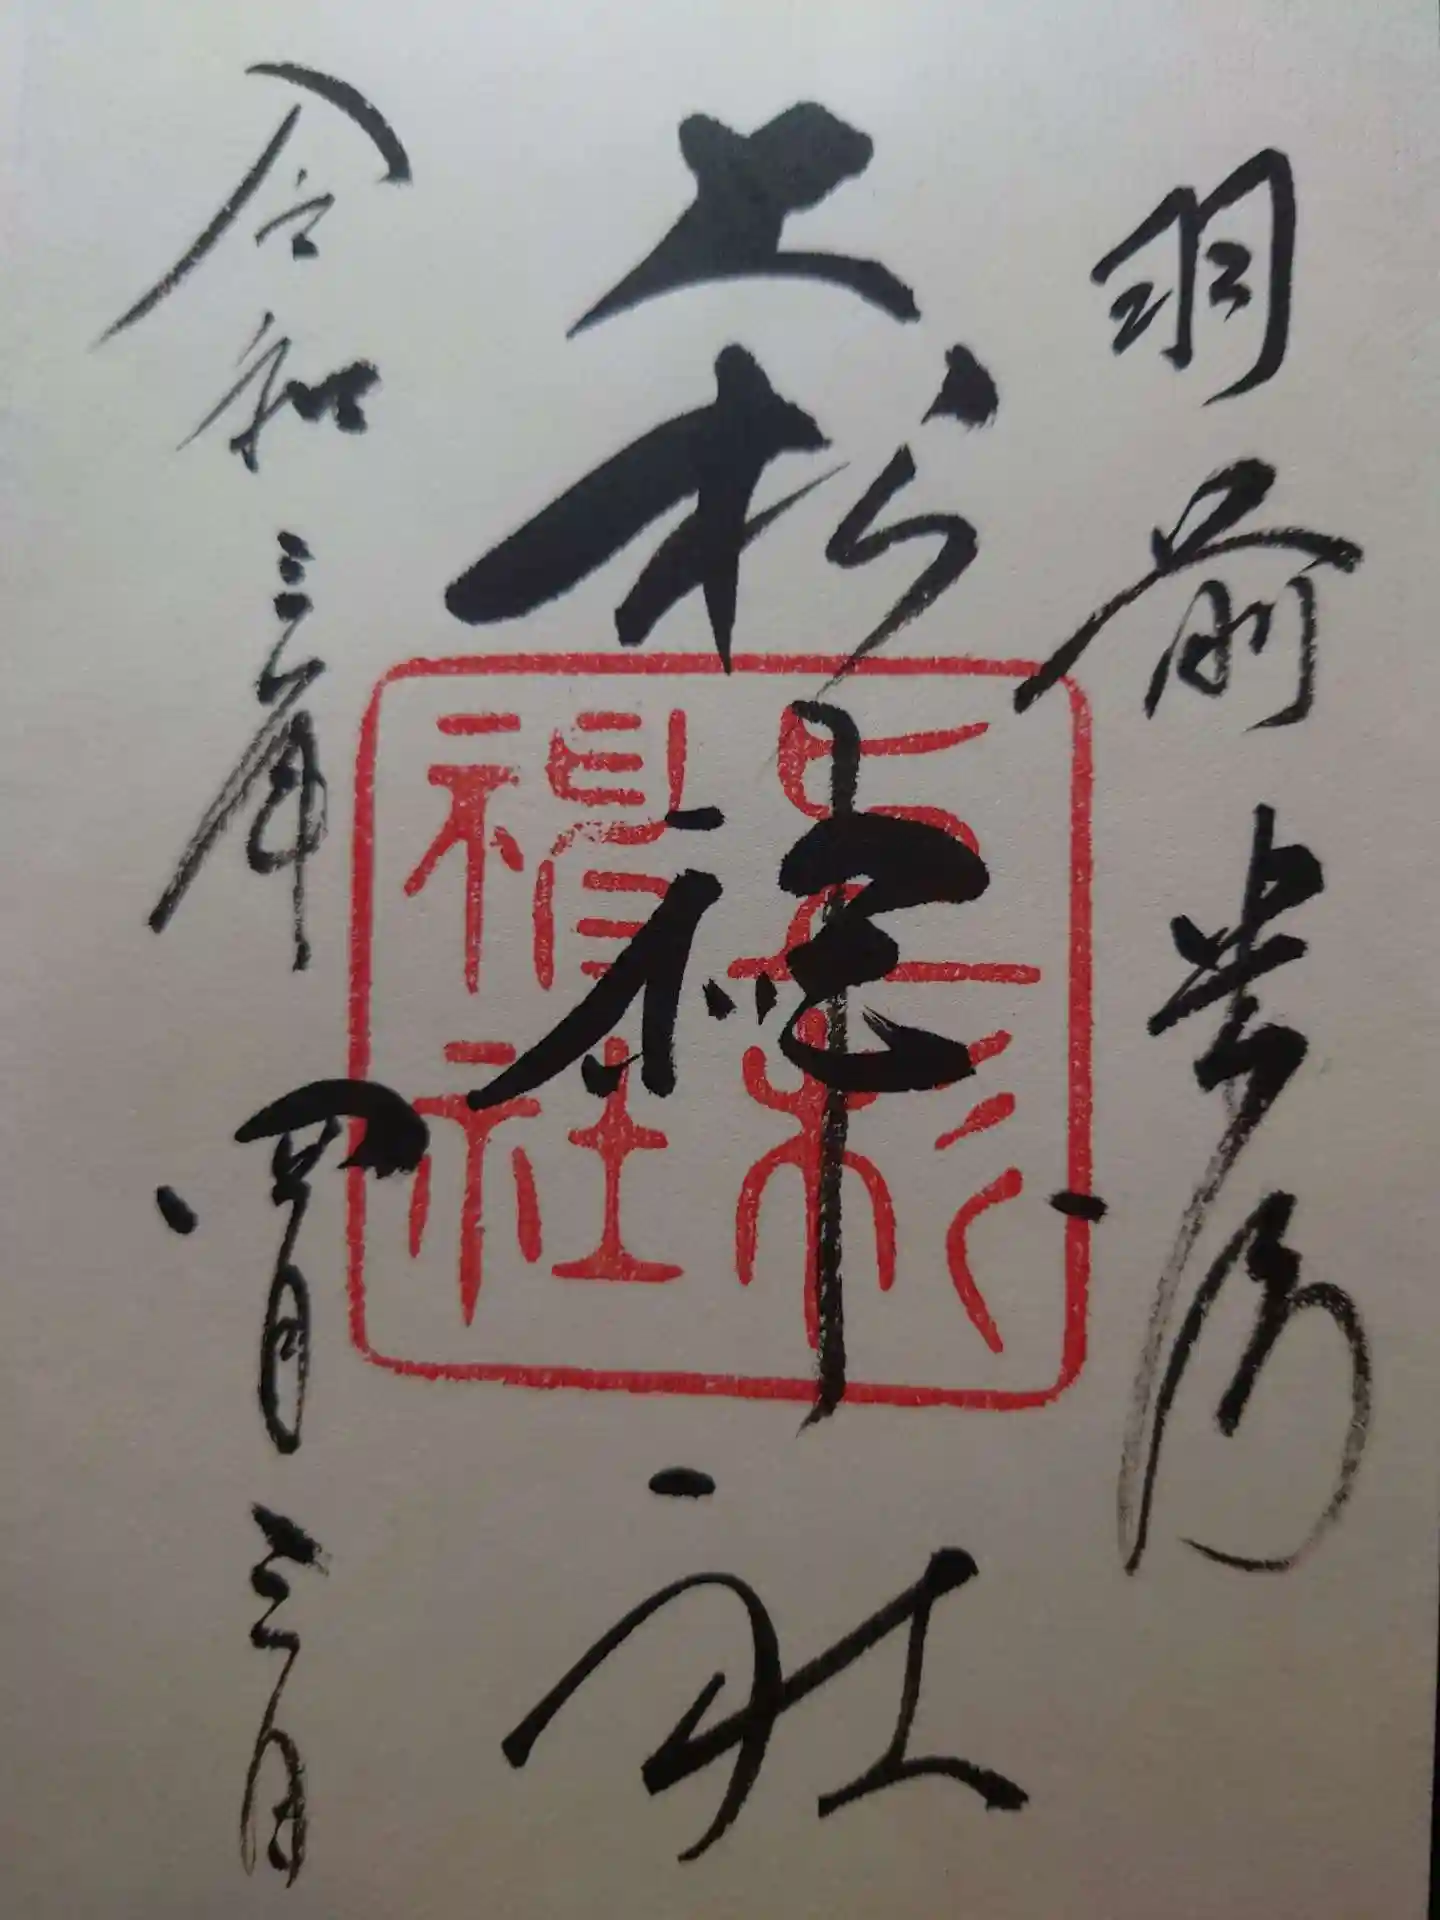 羽前
上杉神社
令和三年四月三日
上杉神社